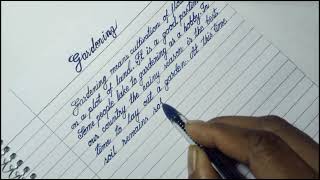 Gardening
Gardening means cultivation of flo
on a plot of land. It is a good pastime
Some people take to gardening as a hobby. In
our country the rainy season is the best
time to lay out a garden. At this time
soil remains so